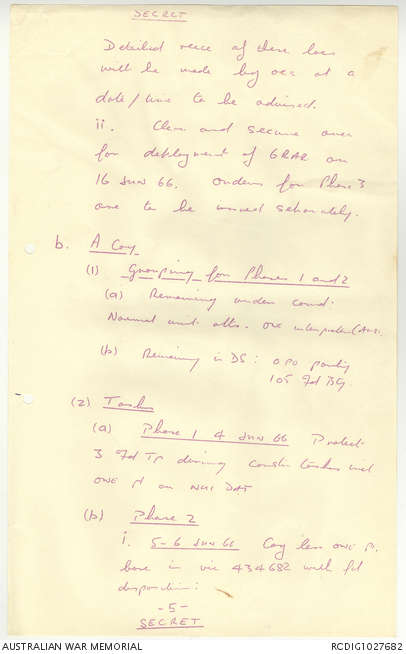 SECRET
Detailed recce of these locs
will be made by OCs at a
date/time to be advised.
ii. Clear and secure area
for deployment of 6RAR on
16 JUN 66. Orders for Phase 3
are to be issued separately.
b. A Coy
(1) Grouping for Phases 1 and 2
(a) Remaining under comd:
Normal unit atts. One interpreter
(b) Remaining in DS: OPO party
105 Fd Bty.
(2) Tasks
(a) Phase 1 4 JUN 66 Protect
3 Fd Tp during constr tasks
ONE pl on NUI DAT
(b) Phase 2
i. 5-6 JUN 66 Coy less ONE Pl.
base in vic 434682 with
dispositions:
-5-
SECRET
AUSTRALIAN WAR MEMORIAL
RCDIG1027682